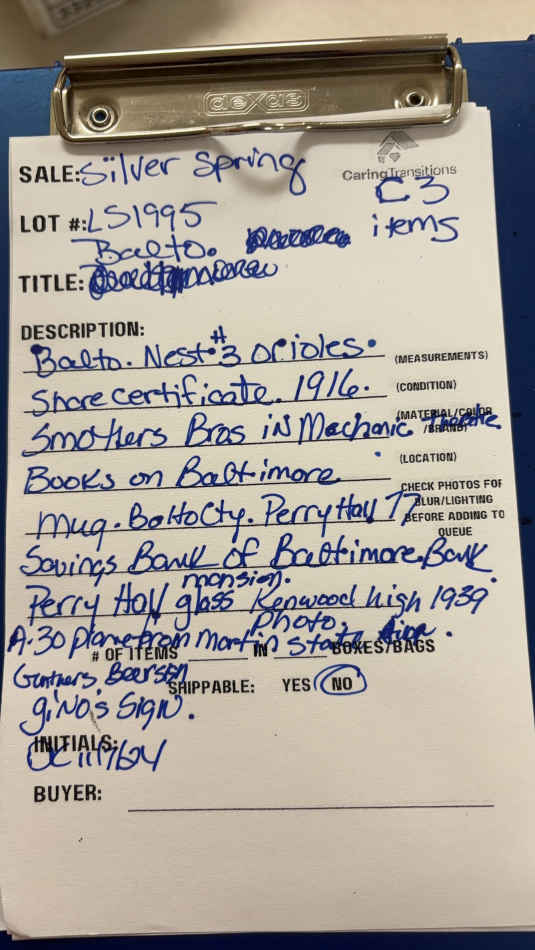 dexas
SALE: Silver Spring
CaringTransitions
C3
LOT #: LS1995
items
Balto.
TITLE:
DESCRIPTION:
Balto. Nest #3 Orioles.
(MEASUREMENTS)
Share certificate. 1916.
(CONDITION)
(MATERIAL/COLOR
Smothers Bros iN Mechanic Theatre
/BRAND)
Books on Baltimore
(LOCATION)
CHECK PHOTOS FOR
BLUR/LIGHTING
Mug. Balto Cty. Perry Hall 77
BEFORE ADDING TO
QUEUE
Savings Bank of Baltimore. Bank
mansion.
Perry Hall glass Kenwood high 1939
Photo.
A.30 Plane from Martin State
# OF ITEMS IN BOXES/BAGS
Gunthers Beer
SHIPPABLE: YES NO
giNo's SigN.
INITIALS:
BUYER: